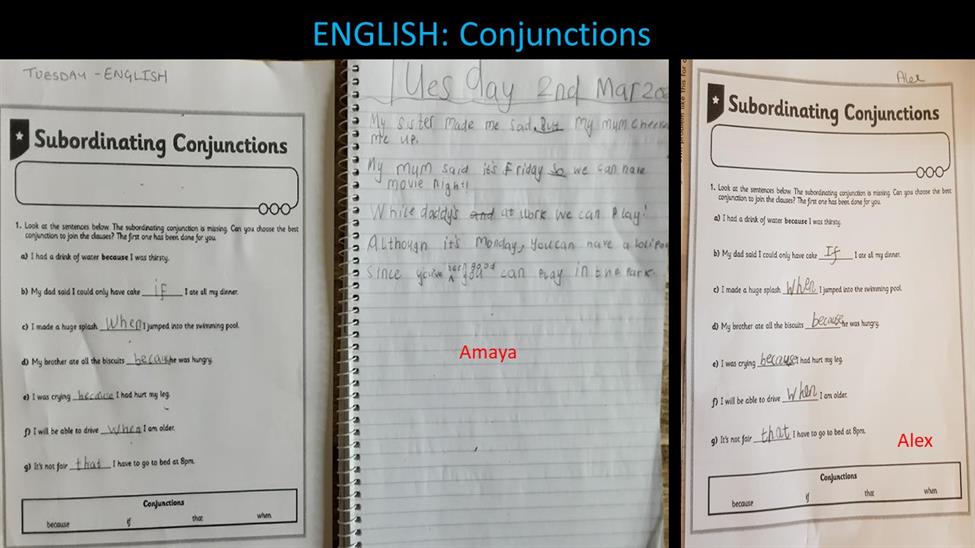 ENGLISH: Conjunctions
TUESDAY - ENGLISH
Subordinating Conjunctions
1. Look at the sentences below. The subordinating conjunction is missing. Can you choose the best
conjunction to join the clauses? The first one has been done for you.
a) I had a drink of water because I was thirsty.
b) My dad said I could only have cake if I ate all my dinner.
c) I made a huge splash When I jumped into the swimming pool.
d) My brother ate all the biscuits because he was hungry.
e) I was crying because I had hurt my leg.
f) I will be able to drive when I am older.
g) It's not fair that I have to go to bed at 8pm.
Conjunctions
because if that when
Tuesday 2nd Mar
My sister made me sad. But my mum
me up.
My mum said it's Friday so we can have
movie night!
While daddy's and at work we can play!
Although it's Monday, you can have a
Since you've good can play in the park.
Amaya
Alex
Subordinating Conjunctions
1. Look at the sentences below. The subordinating conjunction is missing. Can you choose the best
conjunction to join the clauses? The first one has been done for you.
a) I had a drink of water because I was thirsty.
b) My dad said I could only have cake If I ate all my dinner.
c) I made a huge splash When I jumped into the swimming pool.
d) My brother ate all the biscuits because he was hungry.
e) I was crying because I had hurt my leg.
f) I will be able to drive When I am older.
g) It's not fair that I have to go to bed at 8pm.
Alex
Conjunctions
because if that when